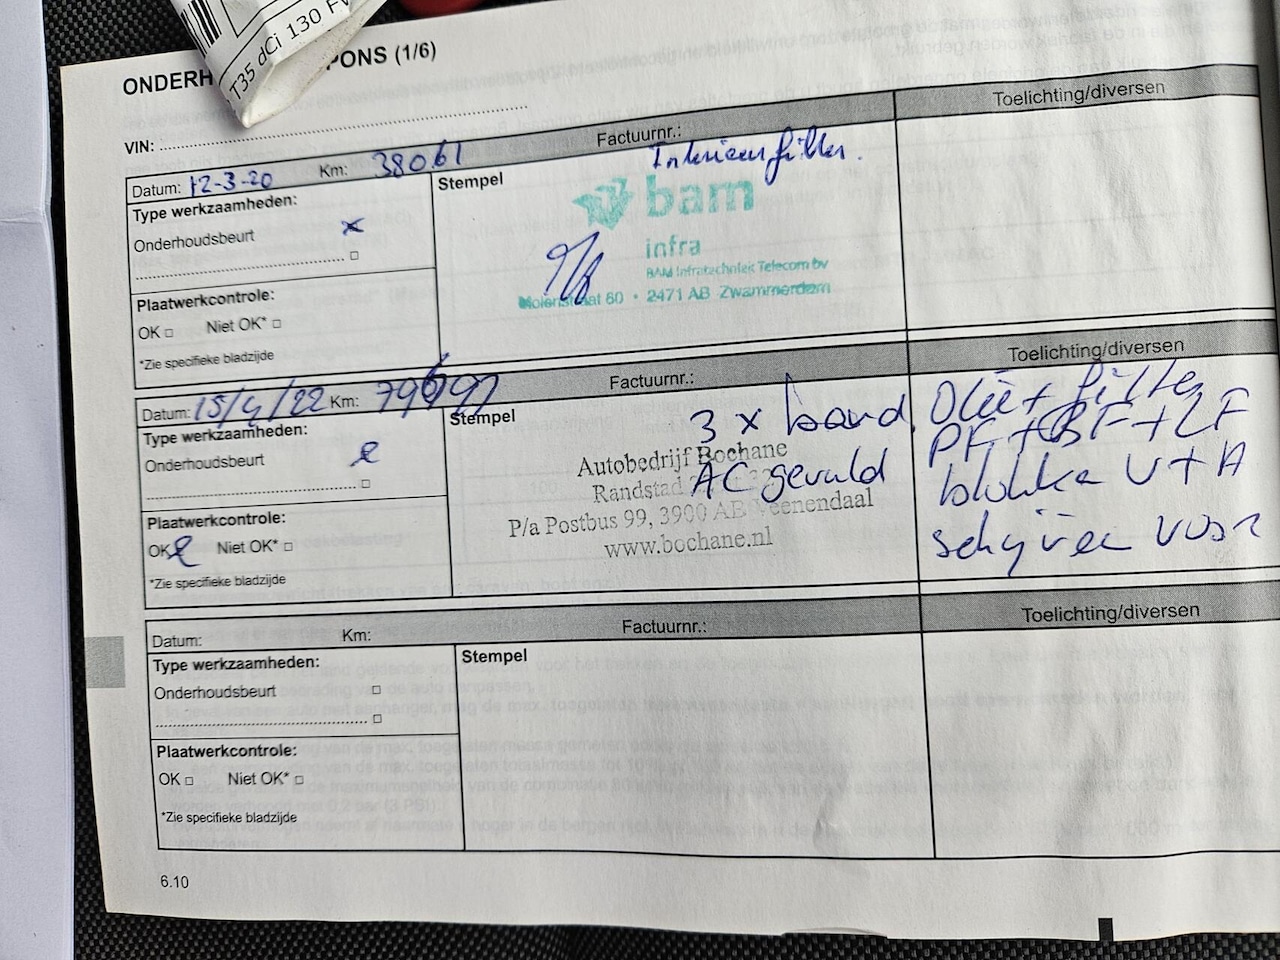 T35 dCi 130
ONDERH PONS (1/6)
VIN:
Datum: 12-3-20 Km: 38061 Factuurnr.: Toelichting/diversen
Interieurfilter.
Type werkzaamheden:
Onderhoudsbeurt x
Plaatwerkcontrole:
OK □ Niet OK* □
*Zie specifieke bladzijde
Stempel
bam
infra
BAM Infratechniek Telecom bv
80 • 2471 AB Zwammerdam
Datum: 15/4/22 Km: Factuurnr.: Toelichting/diversen
Type werkzaamheden:
Onderhoudsbeurt
Plaatwerkcontrole:
OK Niet OK* □
*Zie specifieke bladzijde
Stempel
3 x band
Autobedrijf Bochane
Randstad
AC gevuld
P/a Postbus 99, 3900 AB Veenendaal
www.bochane.nl
Olie + filter
PF + BF + LF
blokken V + A
schijven voor
Datum: Km: Factuurnr.: Toelichting/diversen
Type werkzaamheden:
Onderhoudsbeurt □
Plaatwerkcontrole:
OK □ Niet OK* □
*Zie specifieke bladzijde
Stempel
6.10